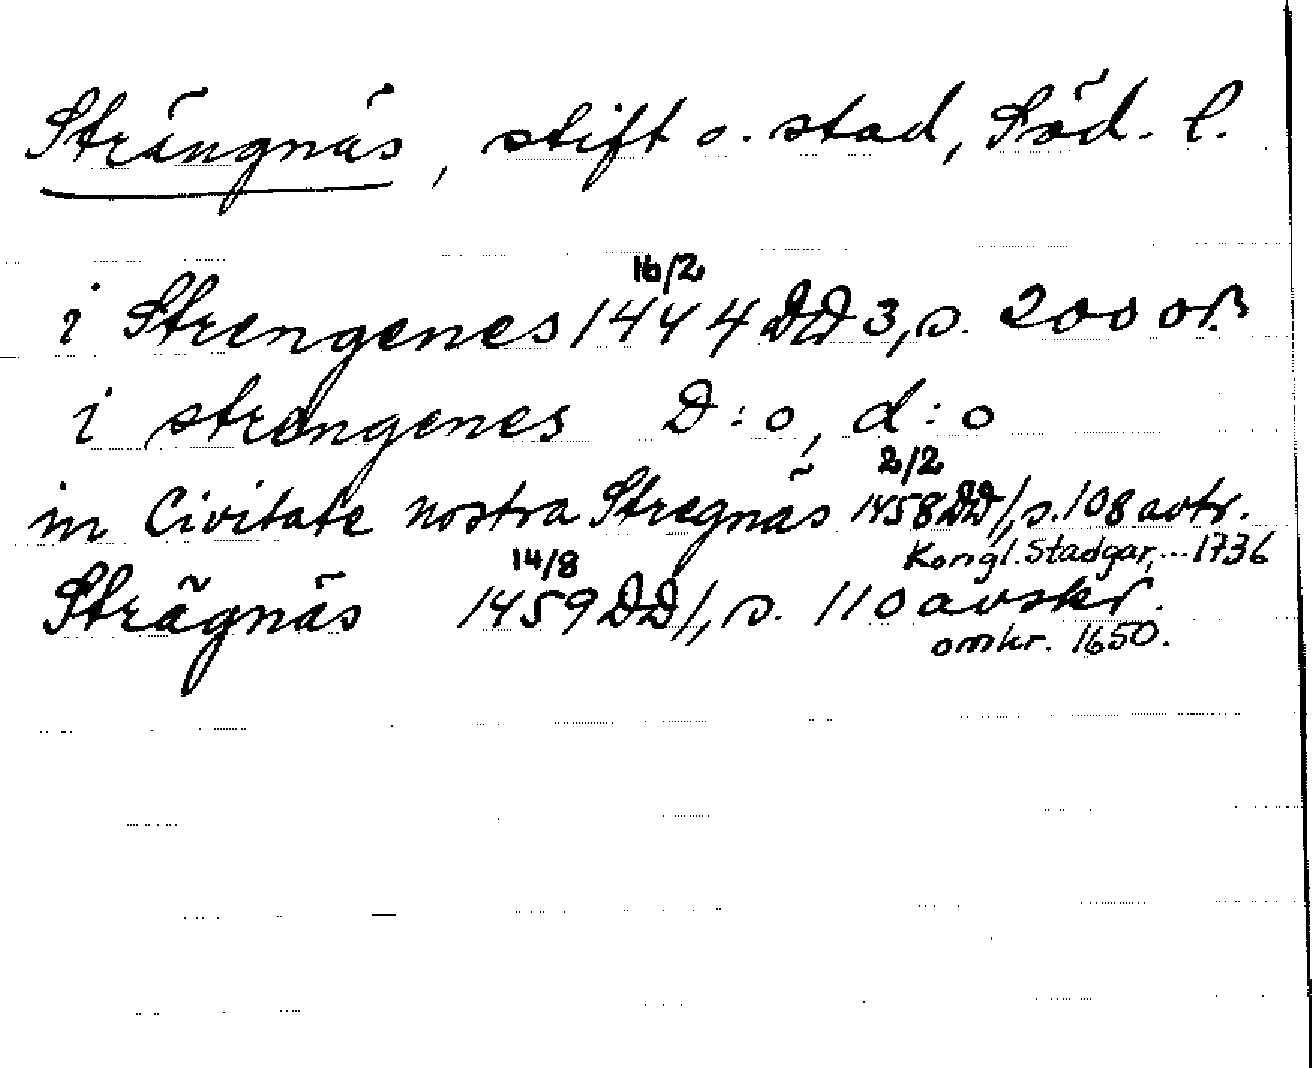 Strängnäs, stift o. stad, Söd. l.
16/2
i Strengenes 1444 DD 3, s. 200 or.
i strengenes D:o, d:o
2/2
in Civitate nostra Stregnäs 1458 DD 1, s. 108 avtr.
Kongl. Stadgar,... 1736
14/8
Strägnäs 1459 DD 1, s. 110 avskr.
omkr. 1650.